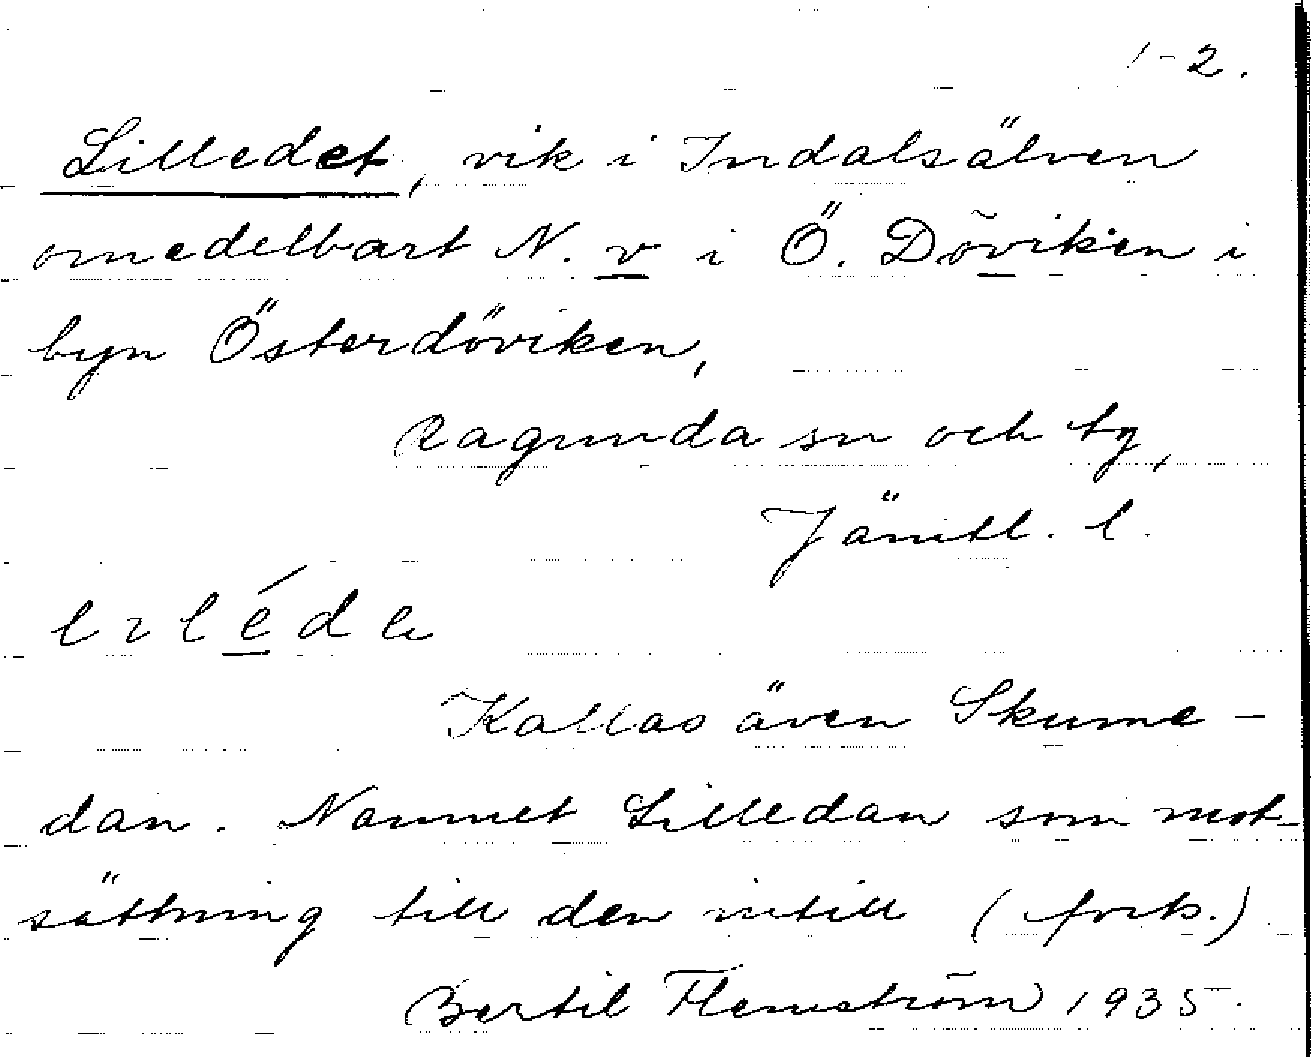 1-2.
Lilledet, vik i Indalsälven
omedelbart N. v i Ö. Döviken i
byn Österdöviken,
Ragunda sn och tg,
Jämtl. l.
Kallas även Skume-
dan. Namnet Lilledan som mot-
sättning till den intill (forts.)
Bertil Flemström 1935.